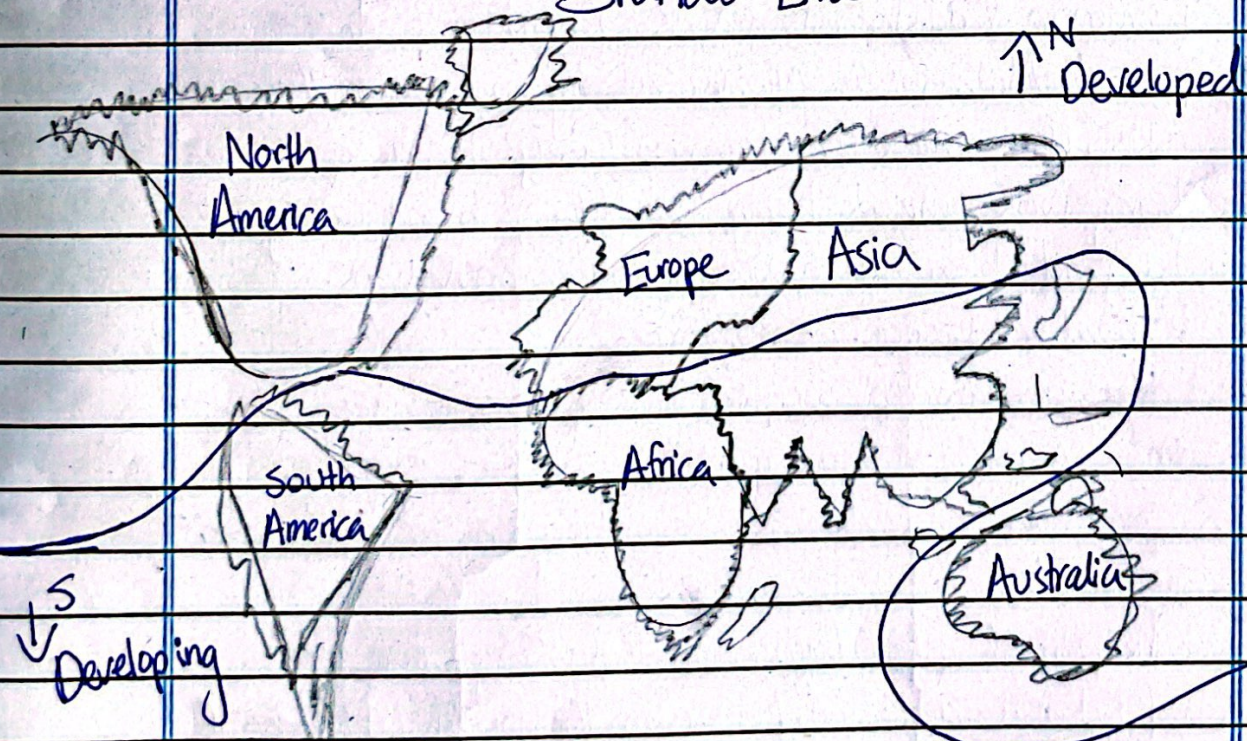 N
Developed
North
America
Europe
Asia
South
America
Africa
Australia
S
Developing